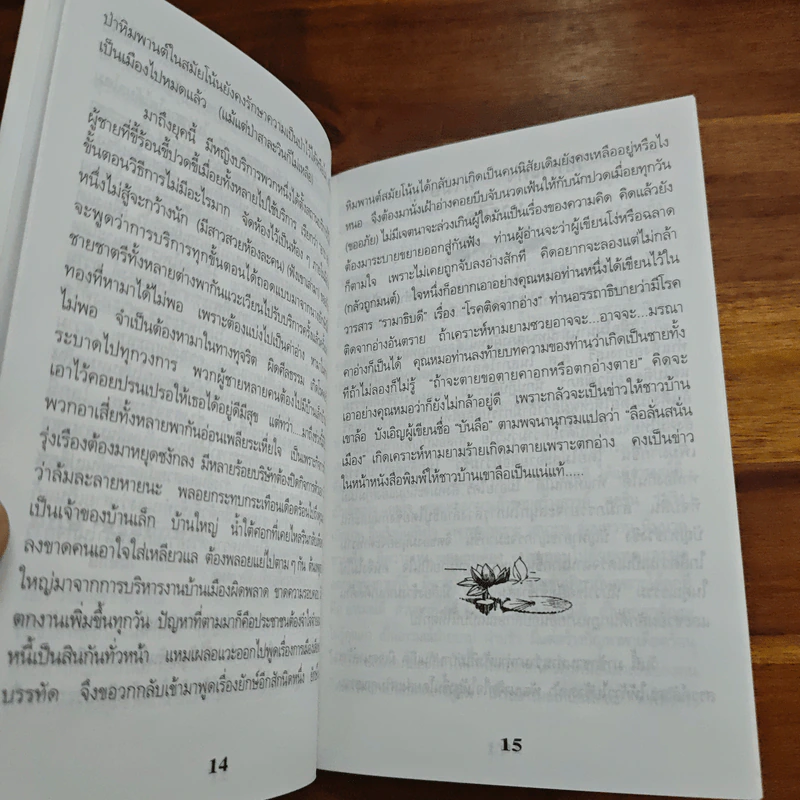 ป่าหิมพานต์ในสมัยโน้นยังคงรักษาความเป็นป่าไว้
เป็นเมืองไปหมดแล้ว (แม้แต่ป่าสาละวินก็ไม่เหลือ)
มาถึงยุคนี้ มีหญิงบริการพวกหนึ่งได้
ผู้ชายที่ขี้ร้อนขี้ปวดขี้เมื่อยทั้งหลายไปใช้บริการ เรียกว่า
ขั้นตอนวิธีการไม่มีอะไรมาก จัดห้องไว้เป็นห้อง ๆ
หนึ่งไม่สู้จะกว้างนัก (มีสาวสวยห้องละคน)
จะพูดว่าการบริการทุกขั้นตอนได้ถอดแบบมาจาก
ชายชาตรีทั้งหลายต่างพากันแวะเวียนไปรับบริการครั้งแล้วครั้ง
ทองที่หามาได้ไม่พอ เพราะต้องแบ่งไปเป็นค่าอ่าง
ไม่พอ จำเป็นต้องหามาในทางทุจริต ผิดศีลธรรม
ระบาดไปทุกวงการ พวกผู้ชายหลายคนต้องไปมีบ้าน
เอาไว้คอยปรนเปรอให้เธอได้อยู่ดีมีสุข แต่ทว่า
พวกอาเสี่ยทั้งหลายพากันอ่อนเพลียระเหี่ยใจ เป็นเพราะ
รุ่งเรืองต้องมาหยุดชงักลง มีหลายร้อยบริษัทต้องปิดกิจการ
ว่าล้มละลายหายนะ พลอยกระทบกระเทือนเดือดร้อนไปถึง
เป็นเจ้าของบ้านเล็ก บ้านใหญ่ น้ำใต้ศอกที่เคยไหลริน
ลงขาดคนเอาใจใส่เหลียวแล ต้องพลอยแย่ไปตาม ๆ กัน
ใหญ่มาจากการบริหารงานบ้านเมืองผิดพลาด ขาดความรอบคอบ
ตกงานเพิ่มขึ้นทุกวัน ปัญหาที่ตามมาก็คือประชาชนต้อง
หนี้เป็นสินกันทั่วหน้า แหมเผลอแวะออกไปพูดเรื่องการเมือง
บรรทัด จึงขอวกกลับเข้ามาพูดเรื่องยักษ์อีกสักนิดหนึ่ง
14
หิมพานต์สมัยโน้นได้กลับมาเกิดเป็นคนนิสัยเดิมยังคงเหลืออยู่หรือไง
หนอ จึงต้องมานั่งเฝ้าอ่างคอยบีบจับนวดเฟ้นให้กับนักปวดเมื่อยทุกวัน
(ขออภัย) ไม่มีเจตนาจะล่วงเกินผู้ใดมันเป็นเรื่องของความคิด คิดแล้วยัง
ต้องมาระบายขยายออกสู่กันฟัง ท่านผู้อ่านจะว่าผู้เขียนโง่หรือฉลาด
ก็ตามใจ เพราะไม่เคยถูกจับลงอ่างสักที คิดอยากจะลองแต่ไม่กล้า
(กลัวถูกมนต์) ใจหนึ่งก็อยากเอาอย่างคุณหมอท่านหนึ่งได้เขียนไว้ใน
วารสาร “รามาธิบดี” เรื่อง “โรคติดจากอ่าง” ท่านอรรถาธิบายว่ามีโรค
ติดจากอ่างอันตราย ถ้าเคราะห์หามยามซวยอาจจะ...อาจจะ...มรณา
คาอ่างก็เป็นได้ คุณหมอท่านลงท้ายบทความของท่านว่าเกิดเป็นชายทั้ง
ทีถ้าไม่ลองก็ไม่รู้ “ถ้าจะตายขอตายคาอกหรือตกอ่างตาย” คิดจะ
เอาอย่างคุณหมอว่าก็ยังไม่กล้าอยู่ดี เพราะกลัวจะเป็นข่าวให้ชาวบ้าน
เขาล้อ บังเอิญผู้เขียนชื่อ “บันลือ” ตามพจนานุกรมแปลว่า “ลือลั่นสนั่น
เมือง” เกิดเคราะห์หามยามร้ายเกิดมาตายเพราะตกอ่าง คงเป็นข่าว
ในหน้าหนังสือพิมพ์ให้ชาวบ้านเขาลือเป็นแน่แท้.....
15